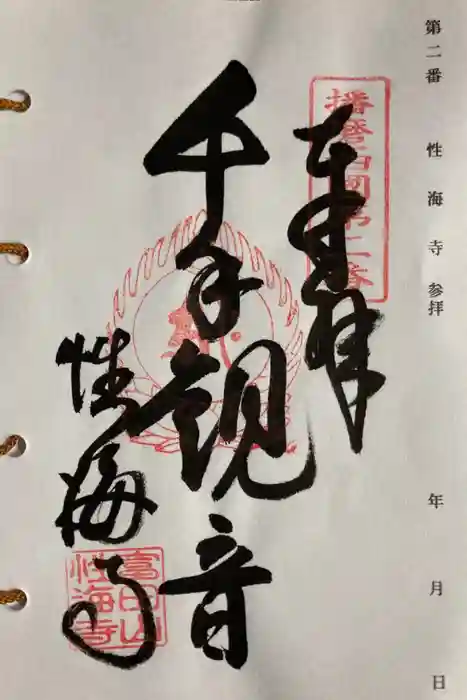 第二番 性海寺 参拝 年 月 日
奉拝
播磨西国第二番
千手観音
性海寺
富田山
性海寺